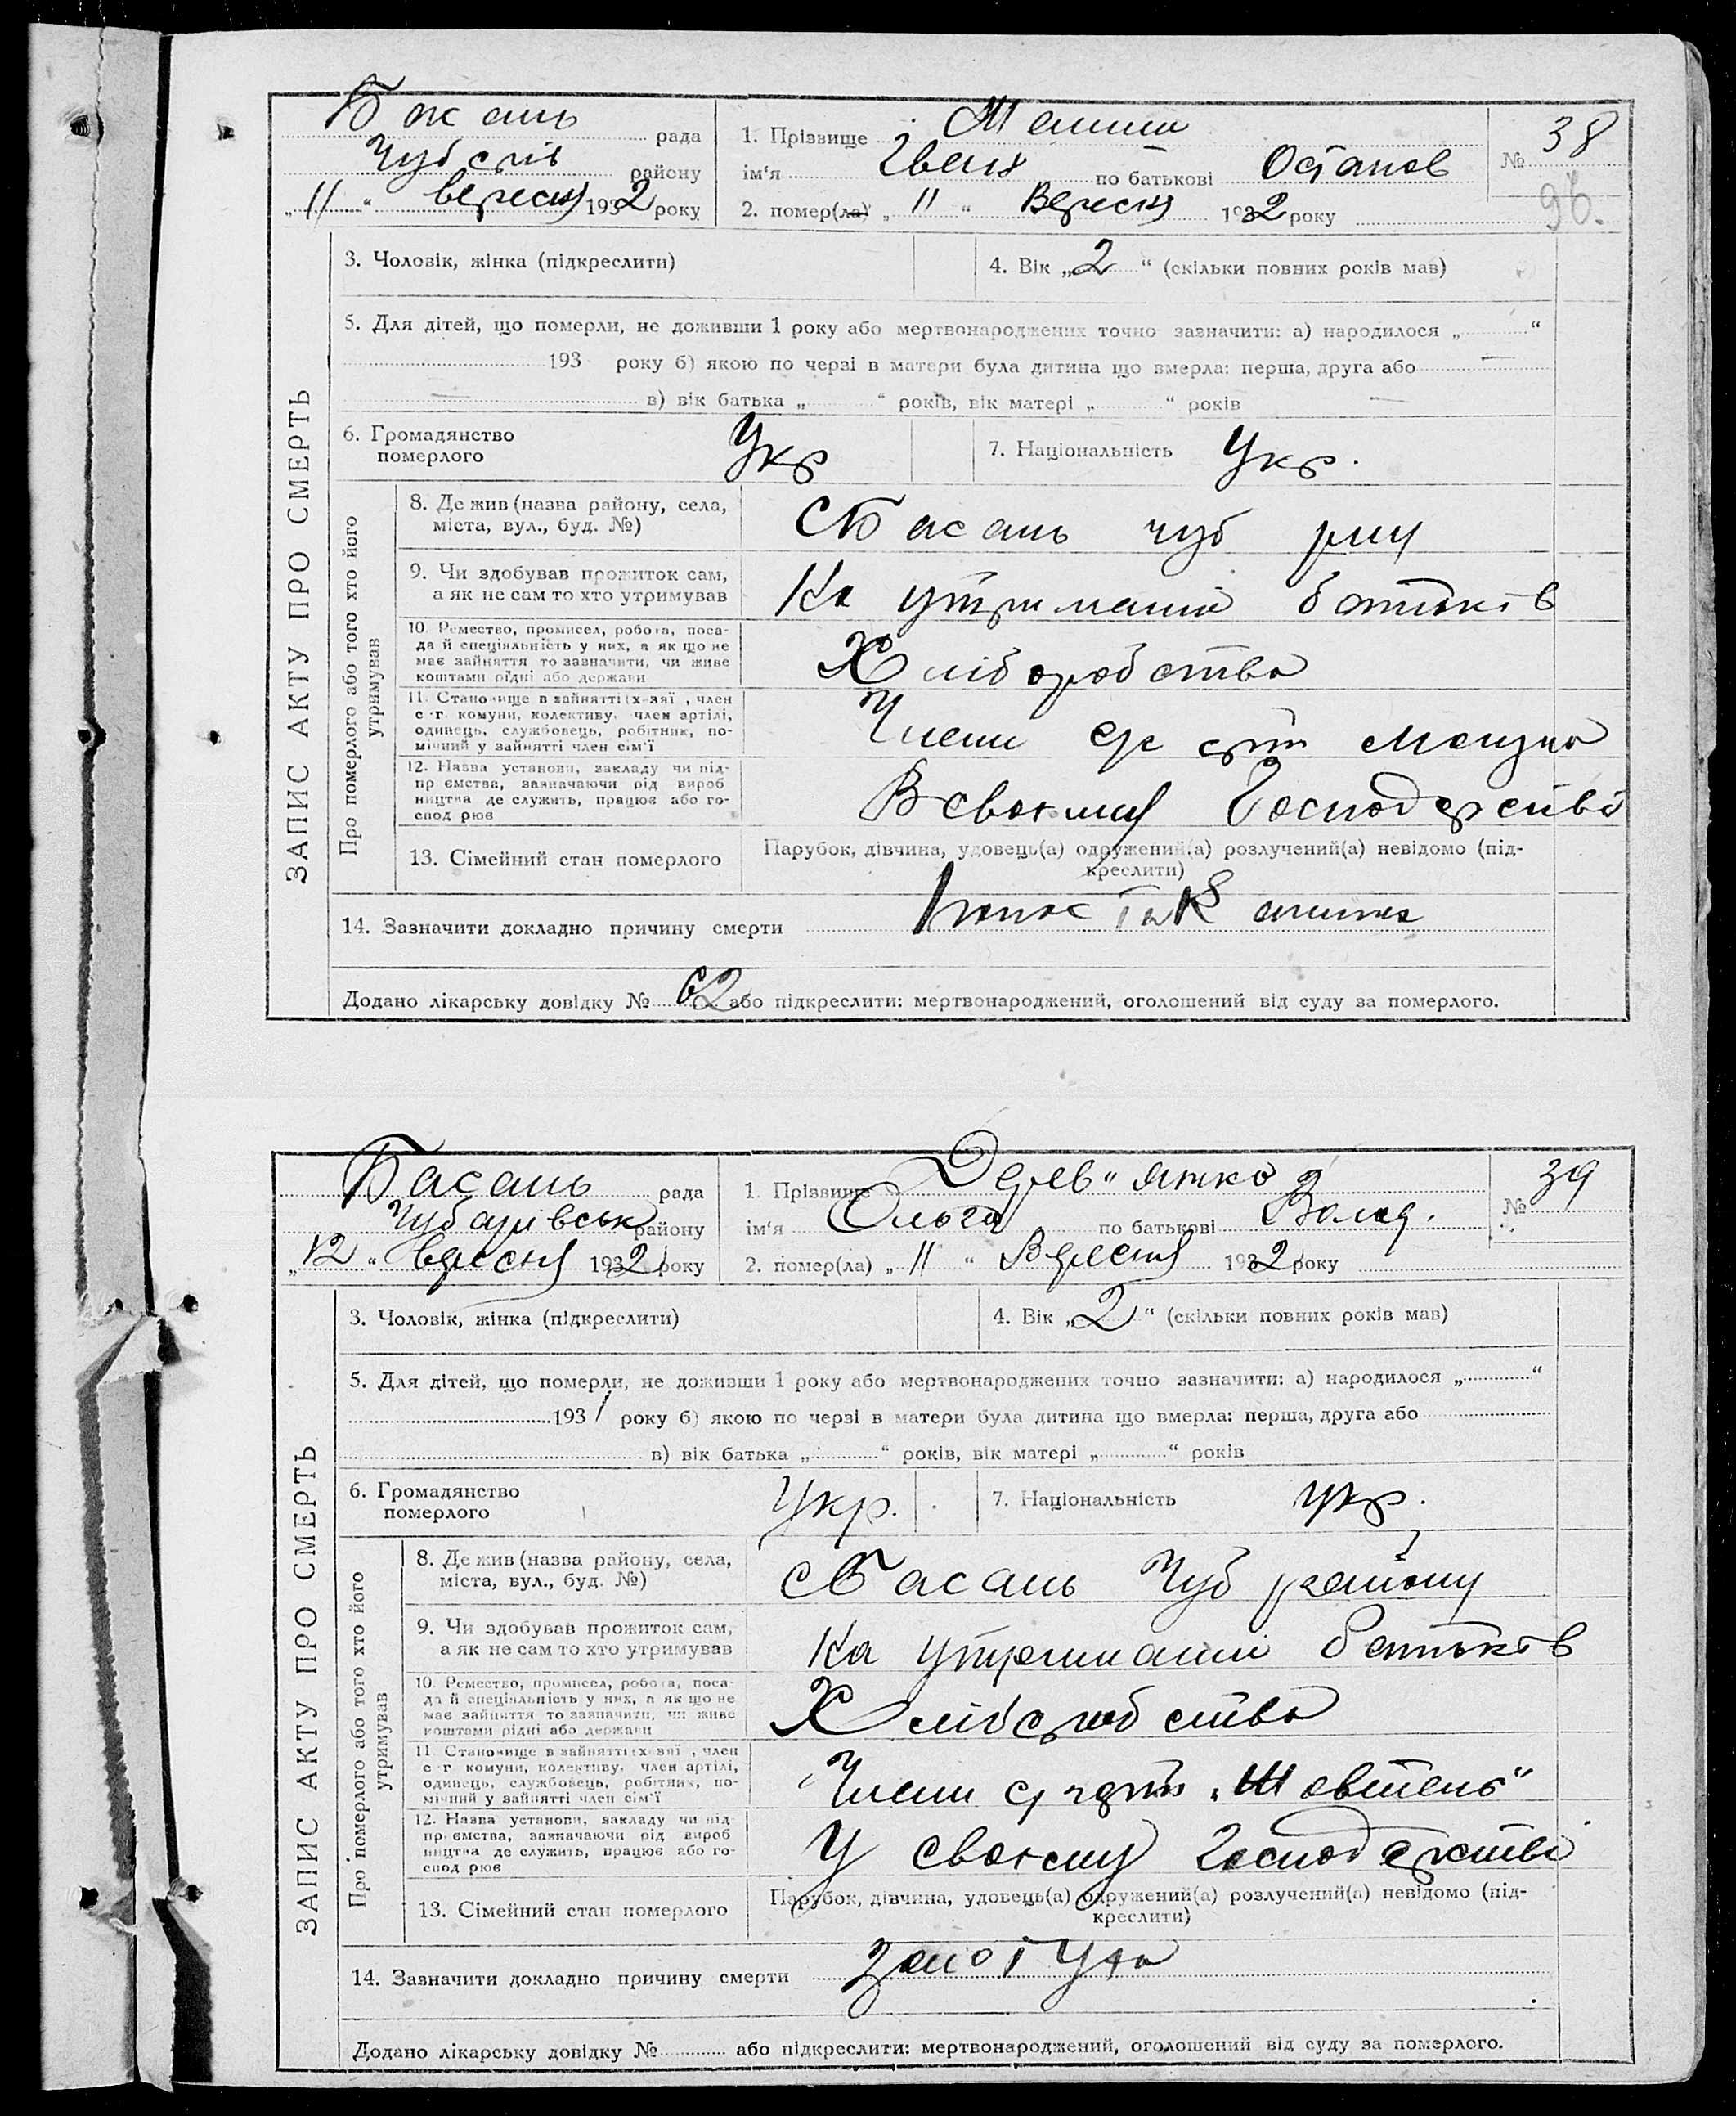 Басань рада
1. Прізвище
району
ім'я Іван по батькові Остапов
№ 38
„11“ вересня 1932 року
2. помер(ла) „11“ Вересня 1932 року
96.
3. Чоловік, жінка (підкреслити)
4. Вік „2“ (скільки повних років мав)
5. Для дітей, що померли, не доживши 1 року або мертвонароджених точно зазначити: а) народилося „ “
193 року б) якою по черзі в матери була дитина що вмерла: перша, друга або
в) вік батька „ “ років, вік матері „ “ років
6. Громадянство померлого Укр
7. Національність Укр.
ЗАПИС АКТУ ПРО СМЕРТЬ
Про померлого або того хто його утримував
8. Де жив (назва району, села,
міста, вул., буд. №)
с Басань чуб
9. Чи здобував прожиток сам,
а як не сам то хто утримував
На утриманні батьків
10. Ремество, промисел, робота, поса-
да й спеціяльність у них, а як що не
має зайняття то зазначити, чи живе
коштами рідні або держави
Хліборобство
11. Становище в зайнятті (х-зяї , член
с-г. комуни, колективу, член артілі,
одинець, службовець, робітник, по-
мічний у зайнятті член сім'ї
Члени
12. Назва установи, закладу чи під-
пр ємства, зазначаючи рід вироб
ництва де служить, працює або го-
спод рює
В своєму Господарстві
13. Сімейний стан померлого
Парубок, дівчина, удовець(а) одружений(а) розлучений(а) невідомо (під-
креслити)
14. Зазначити докладно причину смерти
Додано лікарську довідку № 62 або підкреслити: мертвонароджений, оголошений від суду за померлого.
Басань рада
1. Прізвище Дерев"янко
Чубарівськ району
ім'я Ольга по батькові Волод.
№ 39
„12“ Вересня 1932 року
2. помер(ла) „11“ Вересня 1932 року
3. Чоловік, жінка (підкреслити)
4. Вік „2“ (скільки повних років мав)
5. Для дітей, що померли, не доживши 1 року або мертвонароджених точно зазначити: а) народилося „ “
1931 року б) якою по черзі в матери була дитина що вмерла: перша, друга або
в) вік батька „ “ років, вік матері „ “ років
6. Громадянство померлого Укр.
7. Національність укр.
ЗАПИС АКТУ ПРО СМЕРТЬ
Про померлого або того хто його утримував
8. Де жив (назва району, села,
міста, вул., буд. №)
с Басань Чуб району
9. Чи здобував прожиток сам,
а як не сам то хто утримував
На утриманні батьків
10. Ремество, промисел, робота, поса-
да й спеціяльність у них, а як що не
має зайняття то зазначити, чи живе
коштами рідні або держави
Хліборобство
11. Становище в зайнятті (х-зяї , член
с-г. комуни, колективу, член артілі,
одинець, службовець, робітник, по-
мічний у зайнятті член сім'ї
Члени "Жовтень"
12. Назва установи, закладу чи під-
пр ємства, зазначаючи рід вироб
ництва де служить, працює або го-
спод рює
У своєму Господарстві
13. Сімейний стан померлого
Парубок, дівчина, удовець(а) одружений(а) розлучений(а) невідомо (під-
креслити)
14. Зазначити докладно причину смерти
Додано лікарську довідку № або підкреслити: мертвонароджений, оголошений від суду за померлого.